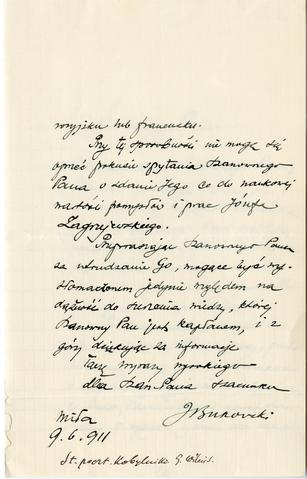 rosyjsku lub francusku.
Przy tej sposobności nie mogę się
oprzeć pokusie spytania Szanownego
Pana o zdanie Jego co do naukowej
wartości pomysłów i prac Józefa
Zagrzejewskiego.
Przepraszając Szanownego Pana
za utrudzanie Go, mogące być wy-
tłomaczonem jedynie względem na
dążność do szerzenia wiedzy, której
Szanowny Pan jest kapłanem, i z
góry dziękując za informacje
łączę wyrazy wysokiego
dla Szan. Pana szacunku
J Bukowski
9. 6. 911
St. poczt. Kobylnik G. Wileńs.